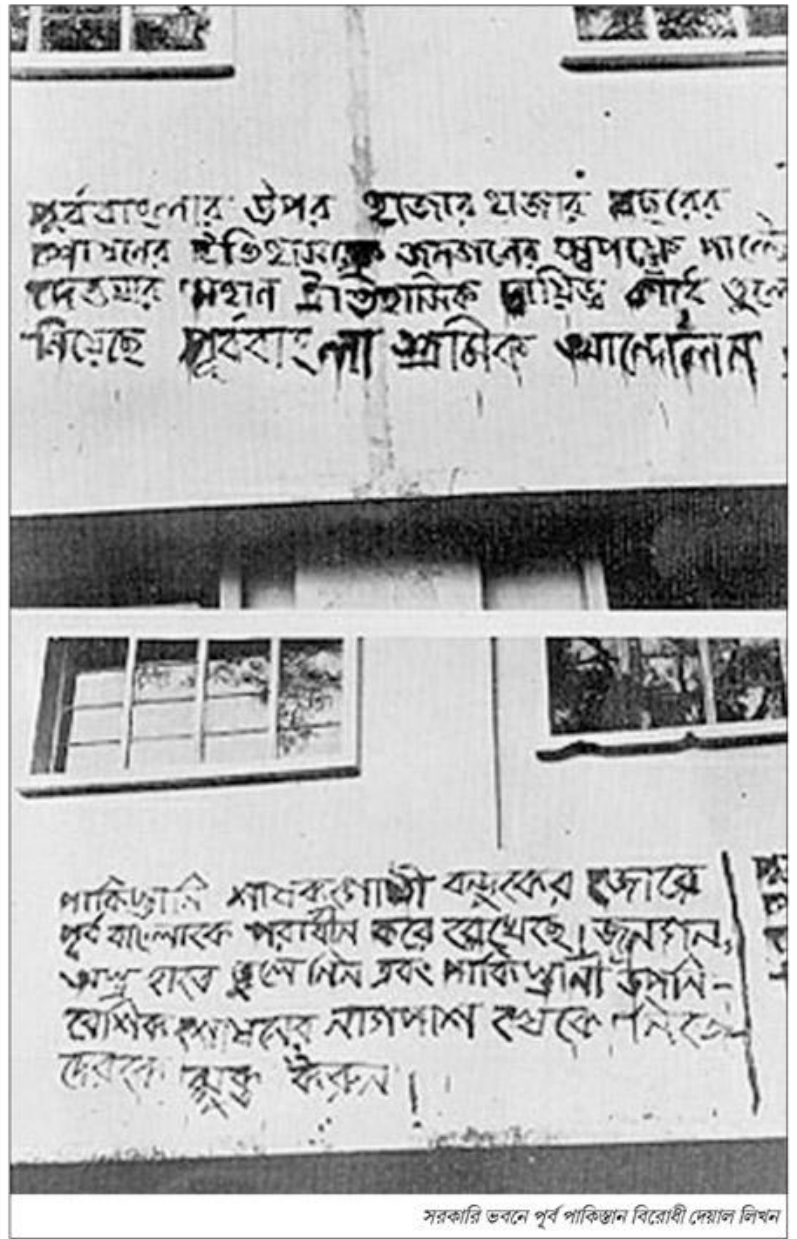 পূর্ববাংলার উপর হাজার হাজার বছরের
শোষনের ইতিহাসকে জনগনের স্বপক্ষে পাল্টে
দেওয়ার মহান ঐতিহাসিক দায়িত্ব কাঁধে তুলে
নিয়েছে পূর্ববাংলা শ্রমিক আন্দোলন
পাকিস্তানি শাষকগোষ্ঠী বন্দুকের জোরে
পূর্ব বাংলাকে পরাধীন করে রেখেছে। জনগন,
অস্ত্র হাতে তুলে নিন এবং পাকিস্তানী উপনি-
বেশিক শোষনের নাগপাশ থেকে নিজে-
দেরকে মুক্ত করুন।
সরকারি ভবনে পূর্ব পাকিস্তান বিরোধী দেয়াল লিখন